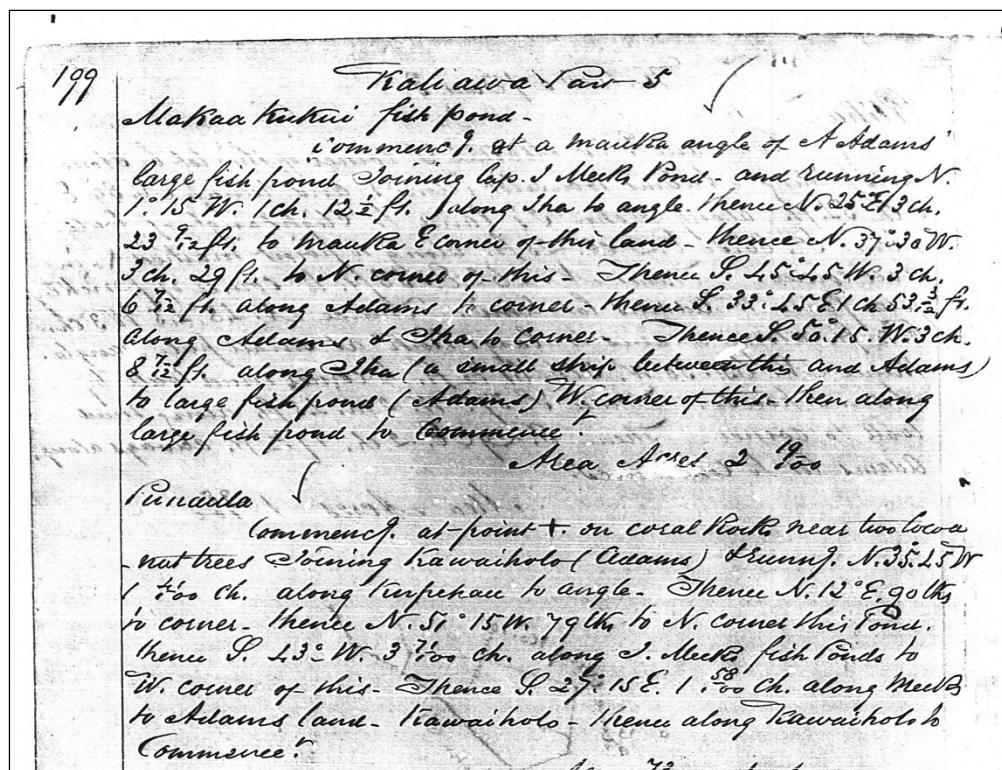 199
Kaliawa Paw 5
Makaa Kukui fish pond -
Commencg. at a mauka angle of A Adams'
large fish pond Joining Cap. J Meeks Pond - and running N.
1° 15 W. 1 ch. 12 1/2 ft. along Iha to angle. thence N. 25° E 3 ch.
23 9/12 ft. to mauka E corner of this land - thence N. 37° 30 W.
3 ch. 29 ft. to N. corner of this - Thence S. 45° 45 W. 3 ch.
6 7/12 ft. along Adams to corner - thence S. 33° 45 E 1 ch 53 3/12 ft.
along Adams & Iha to corner - Thence S. 50° 15 W. 3 ch.
8 7/12 ft. along Iha (a small strip between this and Adams)
to large fish pond (Adams) W. corner of this - then along
large fish pond to Commencet.
Area Acres 2 19/100
Punaula
Commencg. at point +. on coral Rocks near two Cocoa
-nut trees Joining Kawaiholo (Adams) & runng. N. 35° 45 W
1 4/100 ch. along to angle - Thence N. 12° E. 90 lks
to corner - thence N. 51° 15 W. 79 lks to N. corner this Pond.
thence S. 43° W. 3 7/100 ch. along J. Meeks fish Ponds to
W. corner of this - Thence S. 27° 15 E. 1 58/100 ch. along Meeks
to Adams land - Kawaiholo - thence along Kawaiholo to
Commencet.